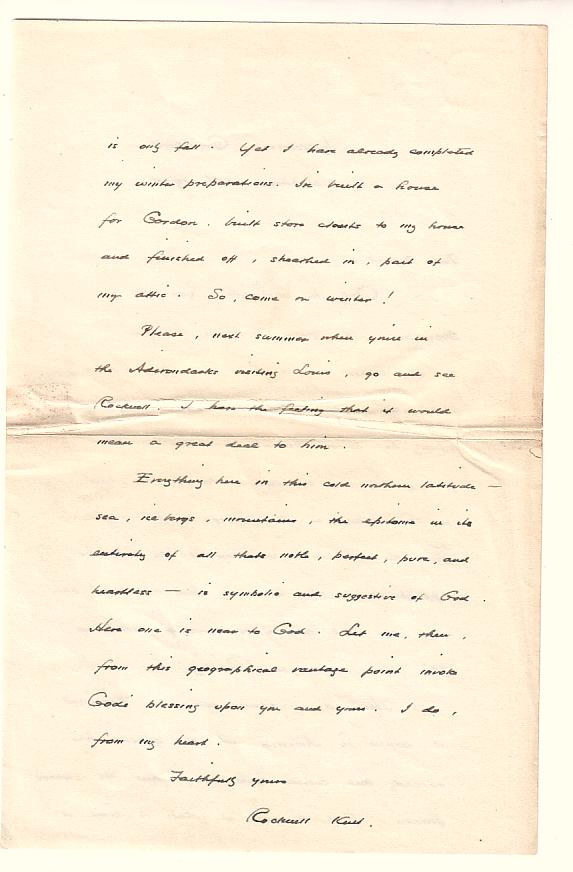 is only fall. Yet I have already completed
my winter preparations. I've built a house
for Gordon, built store closets to my house
and finished off, sheathed in, part of
my attic. So, come on winter!
Please, next summer when you're in
the Adirondacks visiting Louis, go and see
Rockwell. I have the feeling that it would
mean a great deal to him.
Everything here in this cold northern latitude —
sea, ice bergs, mountains, the epitome in its
entirety of all thats noble, perfect, pure, and
heartless — is symbolic and suggestive of God.
Here one is near to God. Let me, then,
from this geographical vantage point invoke
God's blessing upon you and yours. I do,
from my heart.
Faithfully yours
Rockwell Kent.